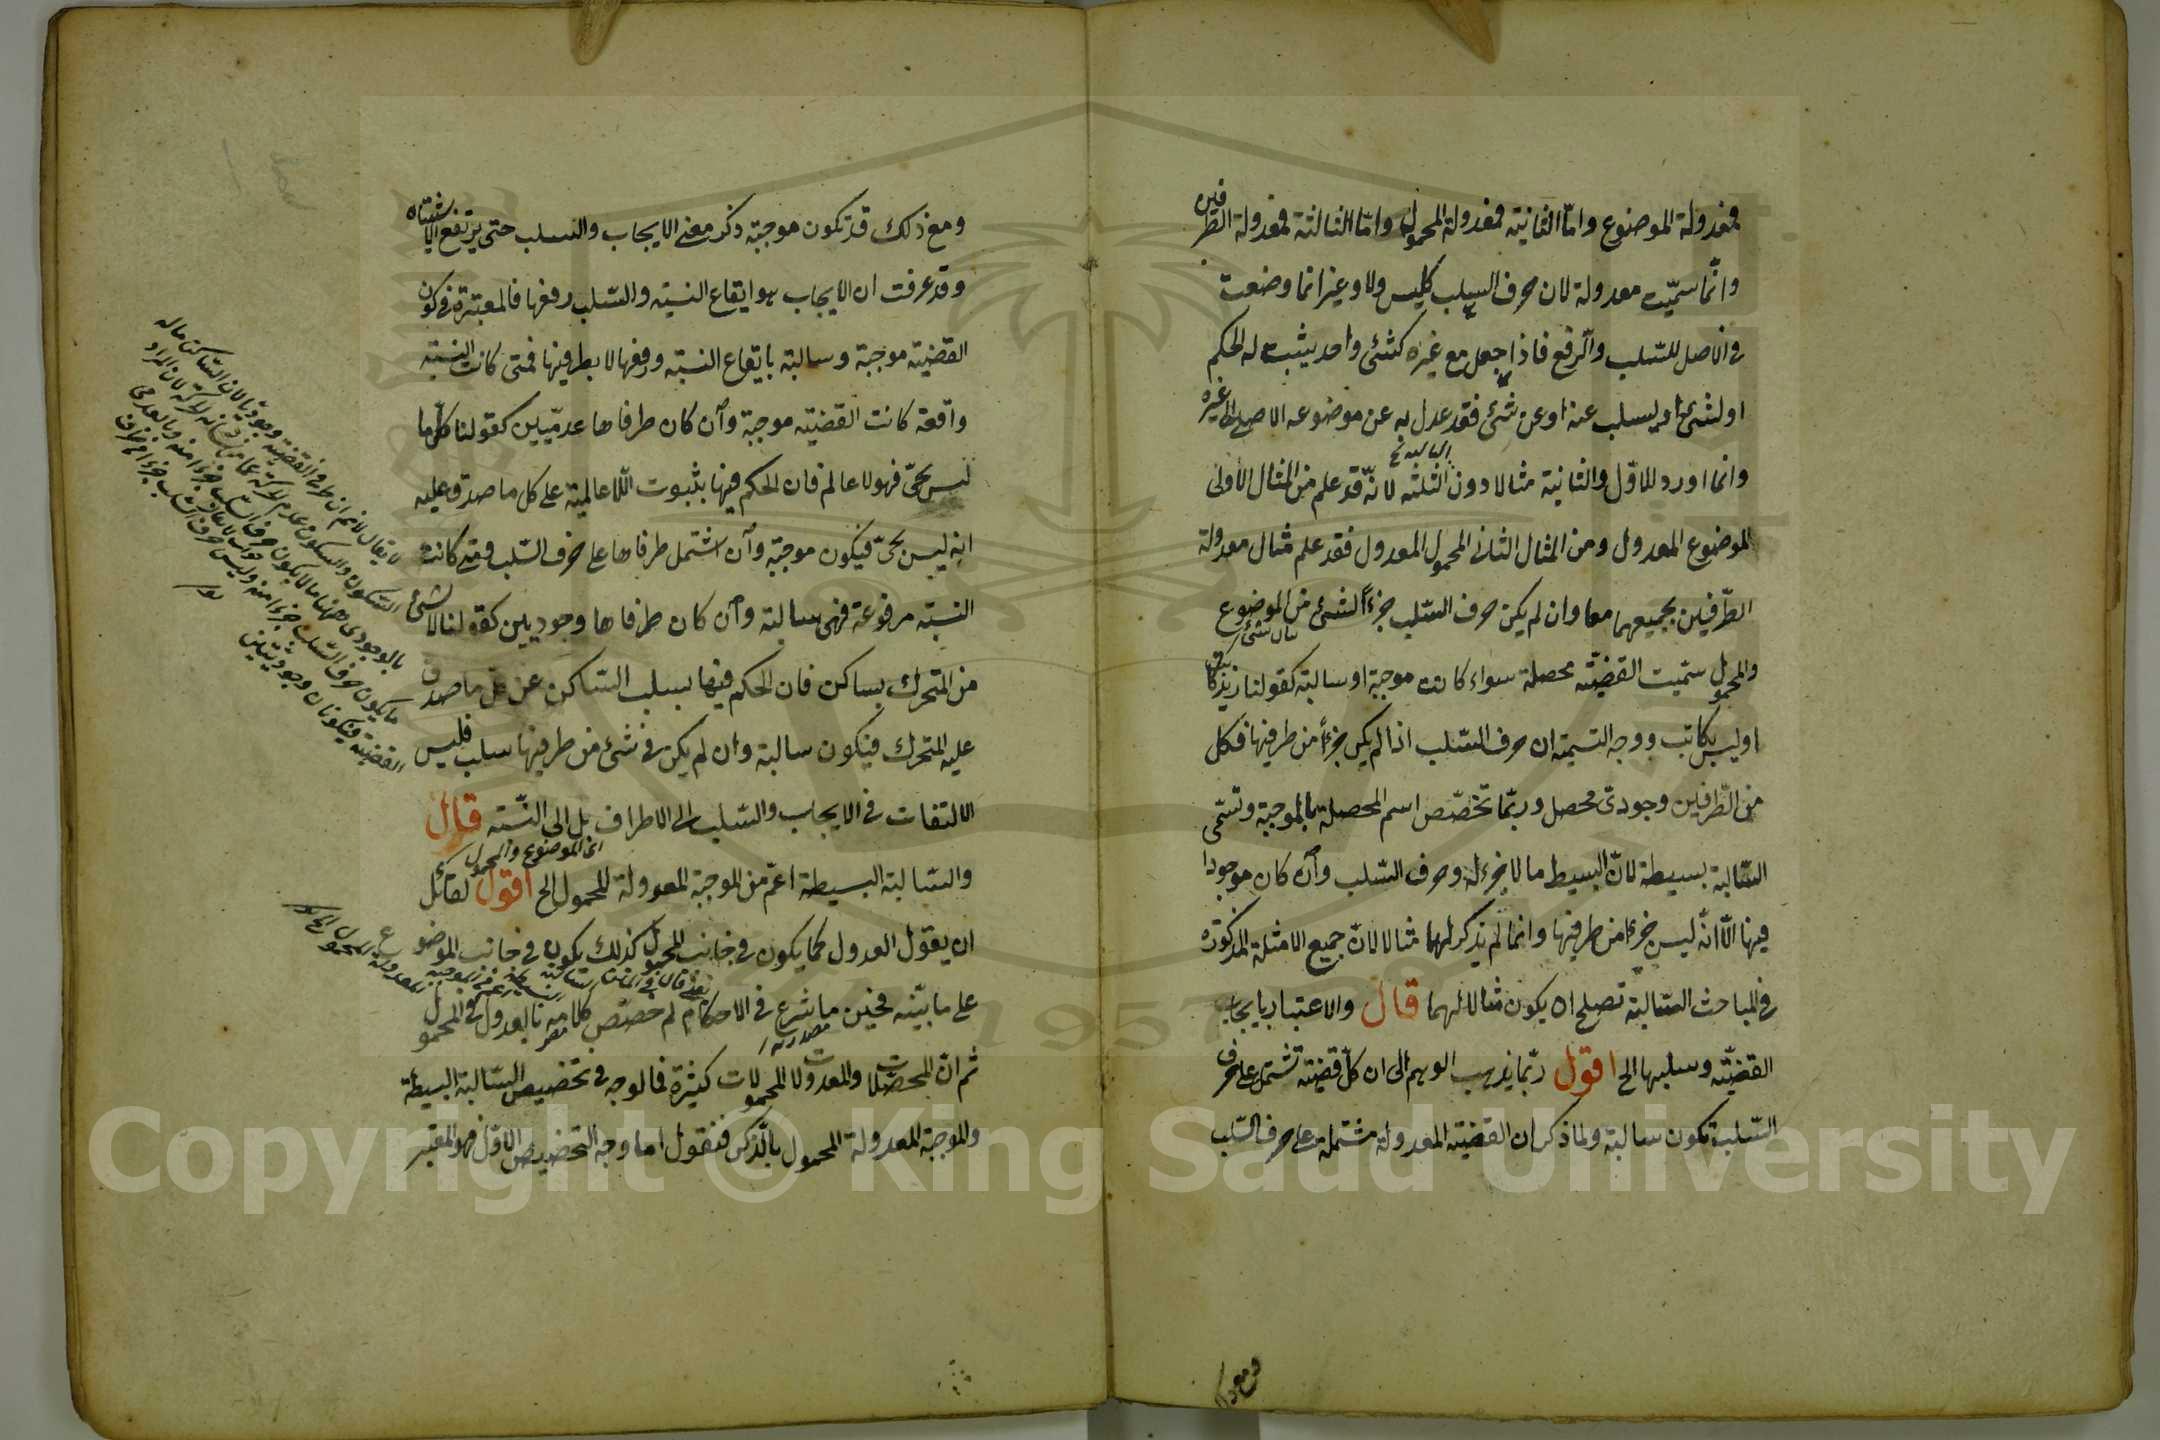 فمعدولة الموضوع واما الثانية فمعدولة المحمول واما الثالثة فمعدولة الطرفين
وانما سميت معدولة لان حرف السلب كليس ولا وغير انما وضعت
في الاصل للسلب والرفع فاذا جعل مع غيره كشئ واحد يثبت له الحكم
او لشئ او يسلب عنه او عن شئ فقد عدل به عن موضوعه الاصلي الى غيره
وانما اورد للاول والثانية مثالا دون الثالثة لانه قد علم من المثال الاول
الموضوع المعدول ومن المثال الثاني المحمول المعدول فقد علم مثال معدولة
الطرفين بجميعهما معا وان لم يكن حرف السلب جزءا لشئ من الموضوع
والمحمول سميت القضية محصلة سواء كانت موجبة او سالبة كقولنا زيد كاتب
او ليس بكاتب ووجه التسمية ان حرف السلب اذا لم يكن جزءا من طرفيها فكل
من الطرفين وجودي محصل وربما تخصص اسم المحصلة بالموجبة وتسمى
السالبة بسيطة لان البسيط ما لا جزء له وحرف السلب وان كان موجودا
فيها الا انه ليس جزءا من طرفيها وانما لم يذكر لهما مثالا لان جميع الامثلة المذكورة
في المباحث السالبة تصلح ان يكون مثالا لهما قال والاعتبار بايجاب
القضية وسلبها الخ اقول ربما يذهب الوهم الى ان كل قضية تشتمل على حرف
السلب تكون سالبة ولما ذكر ان القضية المعدولة مشتملة على حرف السلب
ومع ذلك
ومع ذلك قد تكون موجبة ذكر معنى الايجاب والسلب حتى يرتفع الاشتباه
وقد عرفت ان الايجاب هو ايقاع النسبة والسلب رفعها فالمعتبرة في كون
القضية موجبة وسالبة بايقاع النسبة ورفعها لا بطرفيها فمتى كانت النسبة
واقعة كانت القضية موجبة وان كان طرفاها عدميين كقولنا كل ما
ليس بحي فهو لا عالم فان الحكم فيها بثبوت اللا عالمية على كل ما صدق عليه
انه ليس بحي فيكون موجبة وان اشتمل طرفاها على حرف السلب ومتى كانت
النسبة مرفوعة فهي سالبة وان كان طرفاها وجوديين كقولنا لا شئ
من المتحرك بساكن فان الحكم فيها بسلب الساكن عن كل ما صدق
عليه المتحرك فيكون سالبة وان لم يكن في شئ من طرفيها سلب فليس
الالتفات في الايجاب والسلب الى الاطراف بل الى النسبة قال
اى الموضوع والمحمول
والسالبة البسيطة اعم من الموجبة المعدولة المحمول الخ اقول لقائل
ان يقول العدول كما يكون في جانب المحمول كذلك يكون في جانب الموضوع
على ما بينه فحين ما شرع في الاحكام لم خصص كلامه بالعدول في المحمول
ثم ان المحصلات والمعدولات المحمولات كثيرة فما الوجه في تخصيص السالبة البسيطة
والموجبة المعدولة المحمول بالذكر فنقول اما وجه التخصيص الاول فهو المعتبر